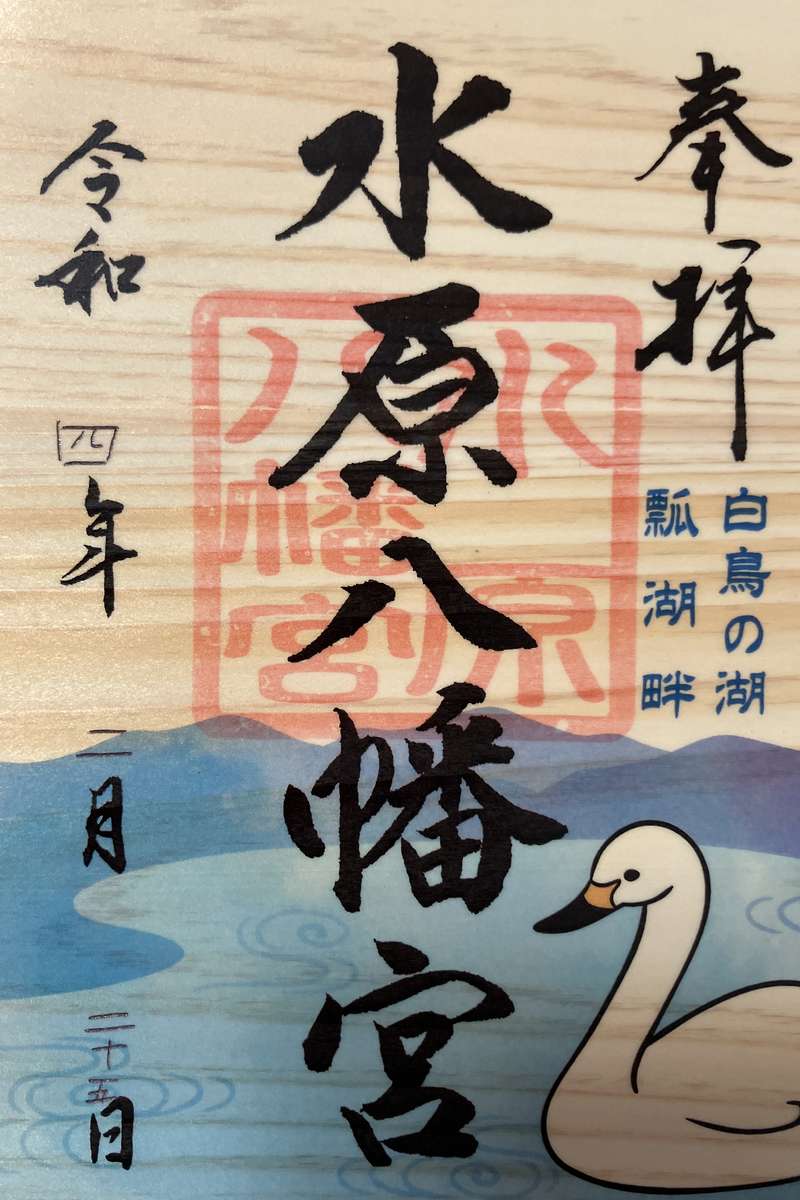 奉拝
白鳥の湖
瓢湖畔
水原八幡宮
水原
八幡宮
令和四年二月二十五日